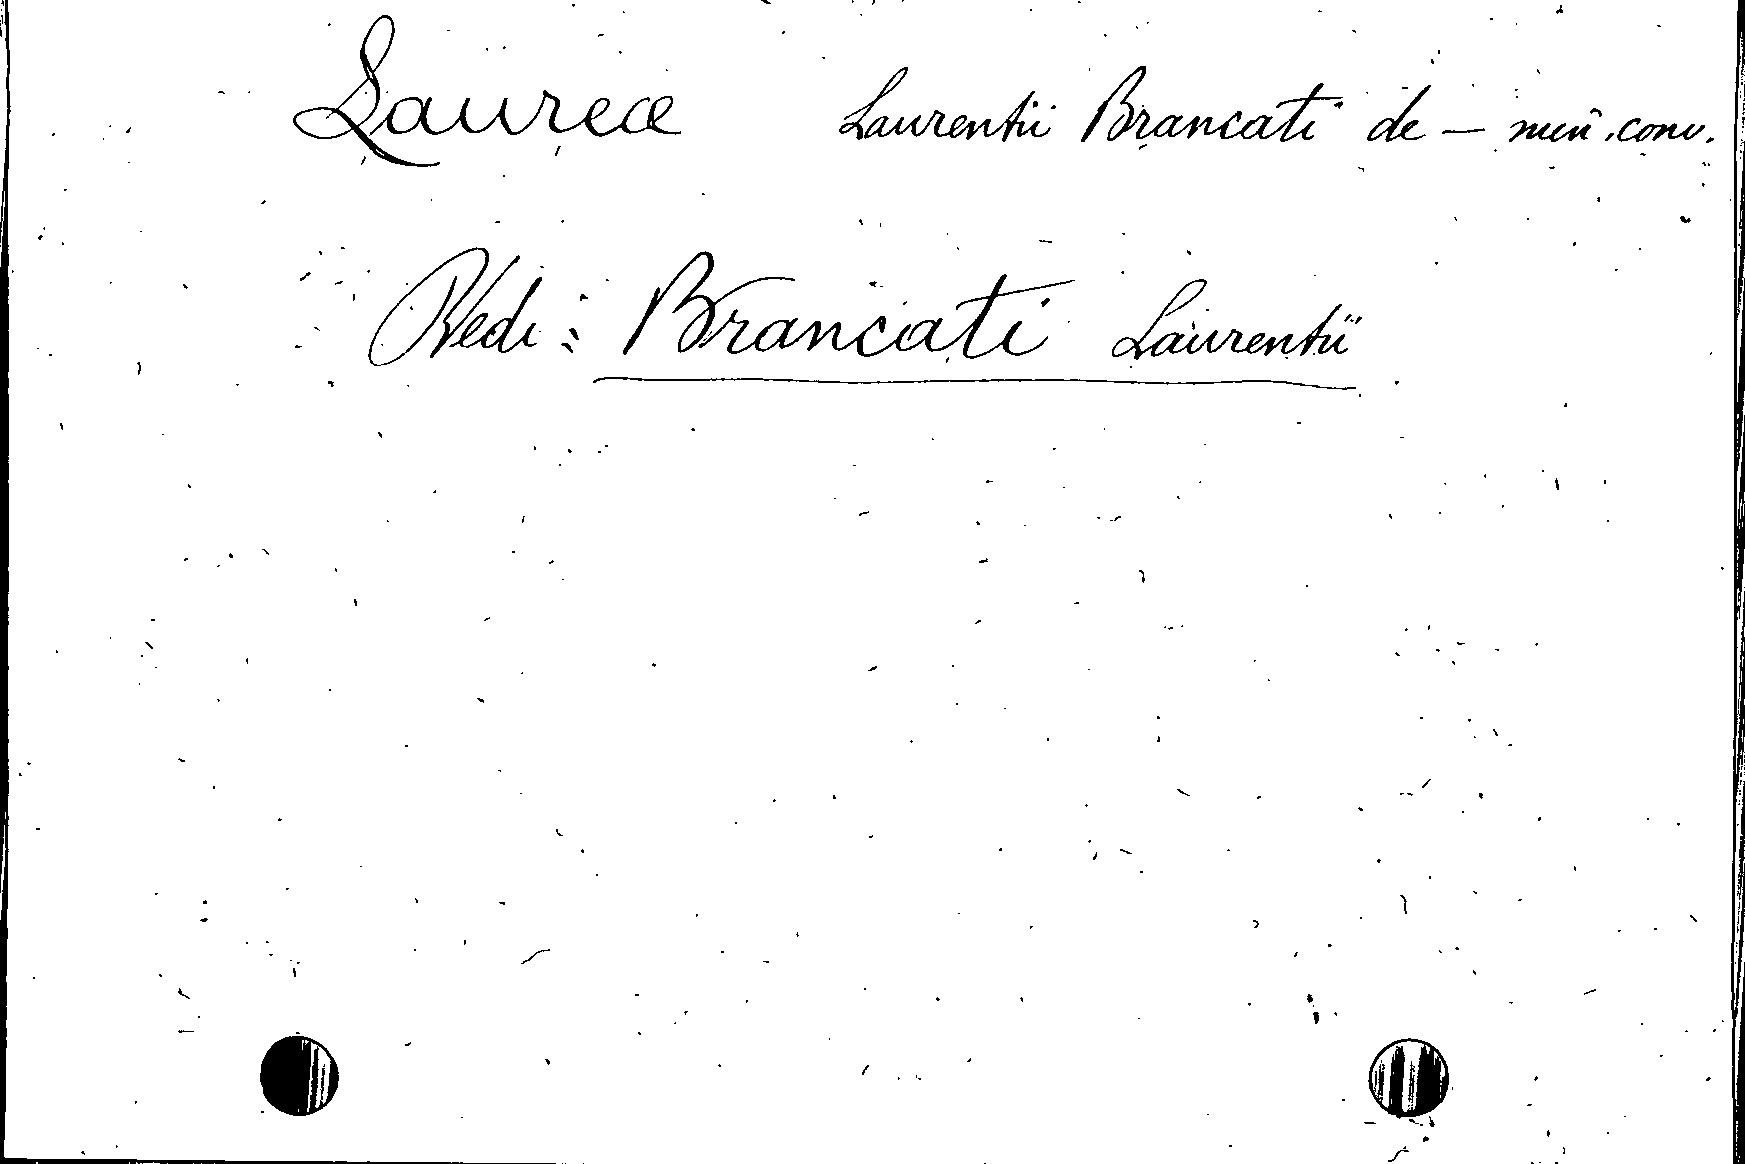 Laurea Laurentii Brancati de — min. conv.
Vedi: Brancati Laurentii